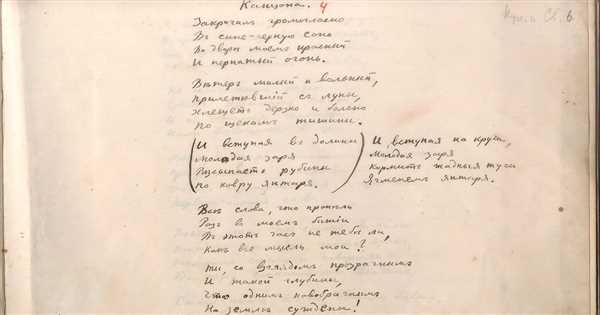 Канцона. 4
6.
Закричалъ громогласно
Въ сине-черную сонь
На дворѣ моемъ красный
И пернатый огонь.
Вѣтеръ милый и вольный,
Прилетѣвшій съ луны,
Хлещетъ дерзко и больно
По щекамъ тишины.
(И вступая въ долины
Молодая заря
рубины
По ковру января.)
И, вступая на кручи,
Молодая заря
Кормитъ жадныя тучи
Ячменемъ янтаря.
Всѣ слова, что пропѣлъ
Разъ въ моемъ бытіи
Въ этотъ часъ не тебѣ ли,
Какъ всѣ мысли мои?
Ты, со взглядомъ прозрачнымъ
И такой глубины,
Что однимъ новобрачнымъ
На землѣ суждены!